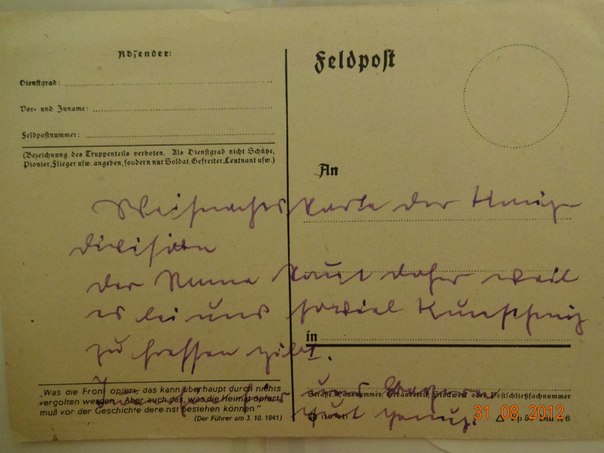 Absender:
Dienstgrad:
Vor- und Zuname:
Feldpostnummer:
(Bezeichnung des Truppenteils verboten. Als Dienstgrad nicht Schütze,
Pionier, Flieger usw. angeben, sondern nur Soldat, Gefreiter, Leutnant usw.)
Feldpost
An
Weihnachtskarte der
division
der Name kommt daher weil
es bei uns soviel Kunsthonig
zu fressen gibt.
in
"Was die Front opfert, das kann überhaupt durch nichts
vergolten werden. Aber auch das, was die Heimat opfert,
muß vor der Geschichte dereinst bestehen können."
(Der Führer am 3. 10. 1941)
31.08.2012